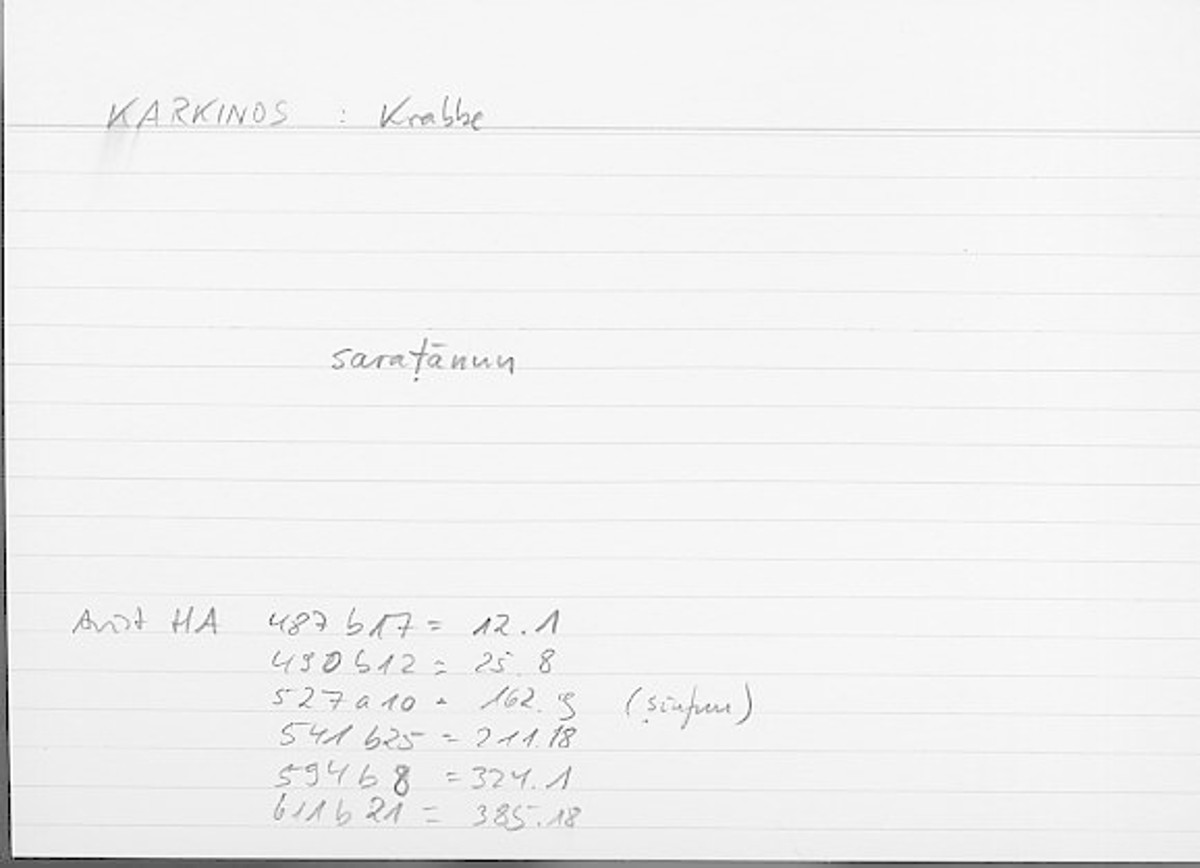 KARKINOS : Krabbe
saraṭānun
Arist HA 487 b17 = 12.1
490 b12 = 25.8
527 a 10 = 162.9 (ṣinfun)
541 b25 = 211.18
594 b 8 = 324.1
611 b 21 = 385.18